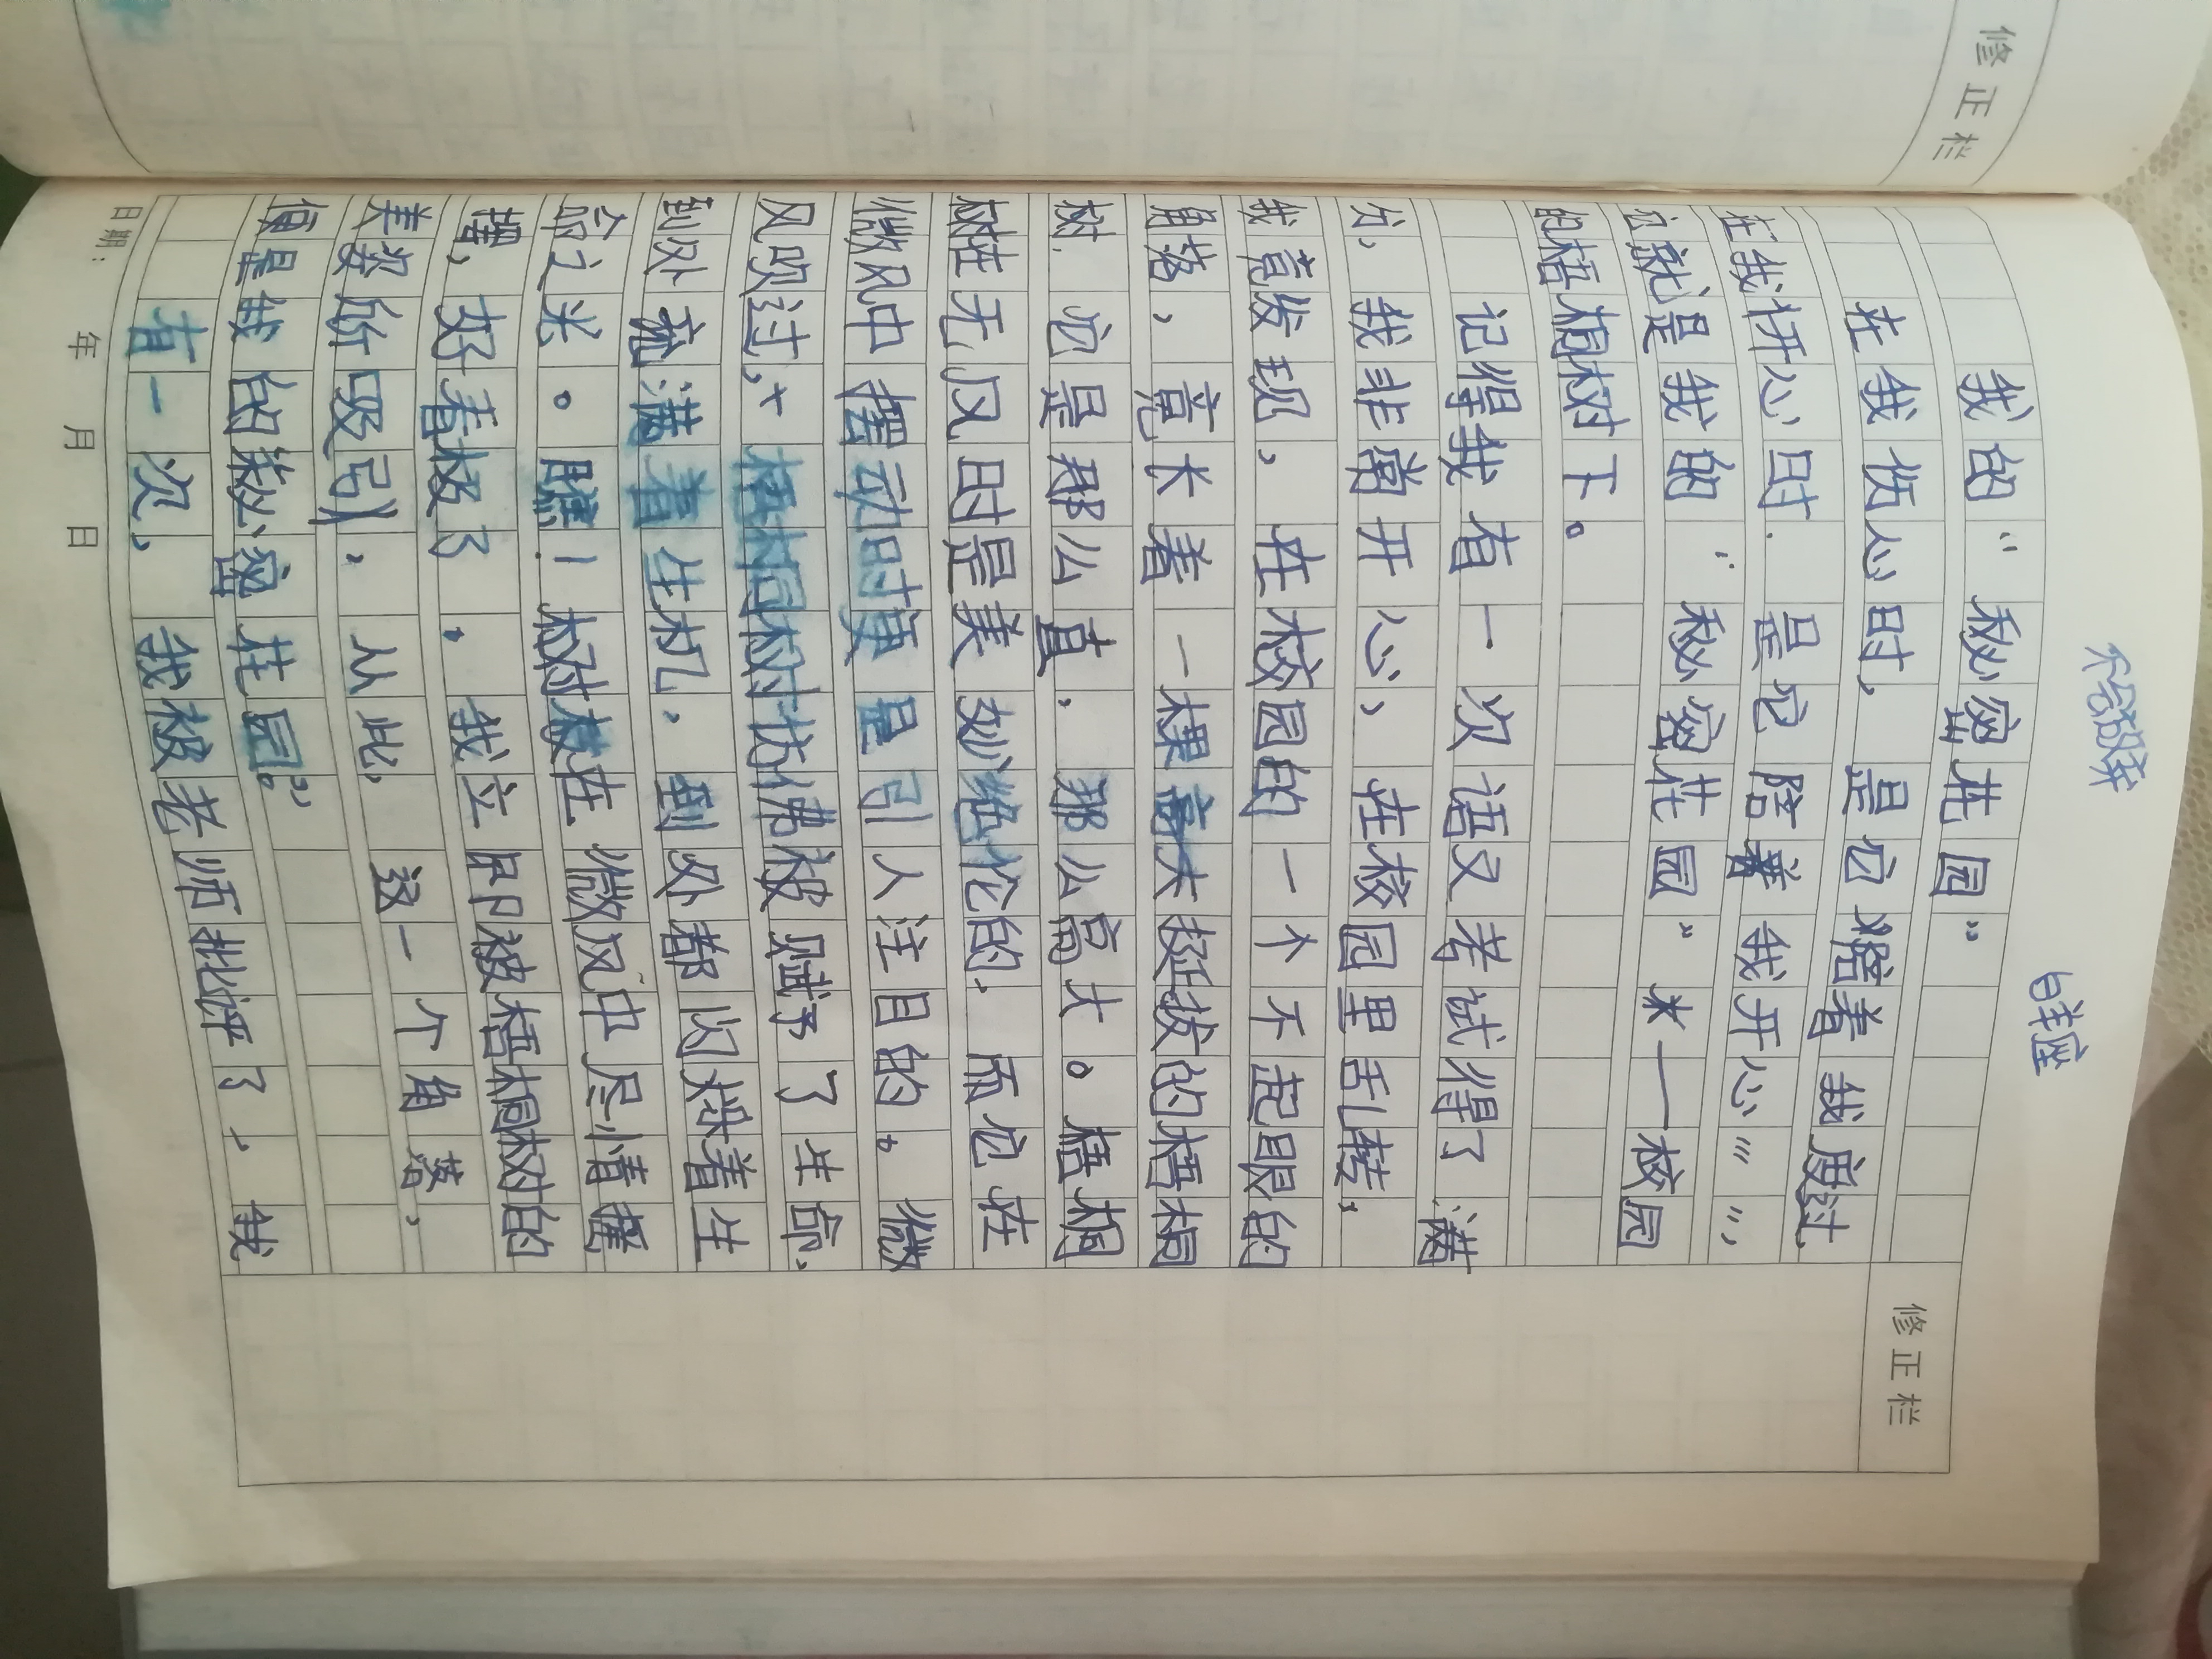 修正栏
白羊座
我的“秘密花园”
在我伤心时，是它陪着我度过，
在我怀心时.是它陪着我开心……，
它就是我的“秘密花园”——校园
的梧桐树下。
记得我有一次语文考试得了满
分，我非常开心，在校园里乱转，
我竟发现，在校园的一个不起眼的
角落，竟长着一棵高大挺拔的梧桐
树.它是那么直.那么高大。梧桐
树在无风时是美妙绝伦的.而它在
微风中摆动时更是引人注目的。微
风吹过，梧桐树仿佛被赋予了生命.
到处充满着生机.到处都闪烁着生
命之光。瞧！树枝在微风中尽情摇
摆，好看极了.我立即被梧桐树的
美姿所吸引.从此，这一个角落，
便是我的秘密花园。”
有一次，我被老师批评了.我
修正栏
日期: 年 月 日